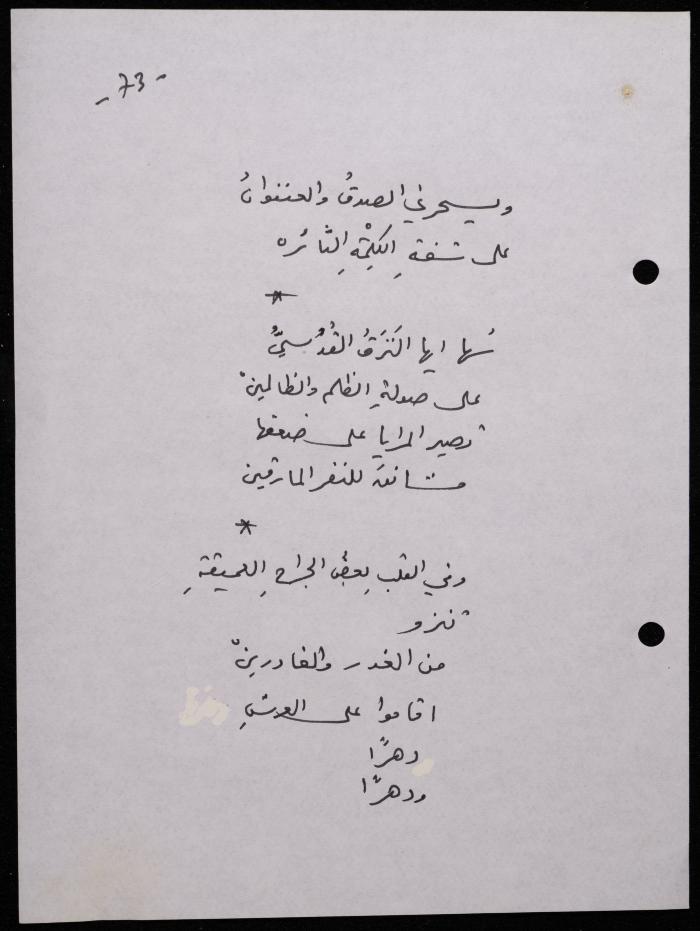 - 73 -
ويسحرني الصدقُ والعنفوانُ
على شفةِ الكلِمْةِ الثَّائره
*
ايها النَزَقُ القُدُسيُّ
على صولةِ الظلم والظالمينْ
تصير المرايا على ضعفها
مشانقَ للنفر المارقين
*
وفي القلب بعضُ الجراحِ العميقةِ
تنزو
من الغدر والغادرينْ
اقاموا على العرشِ
دهرًا
ودهرًا